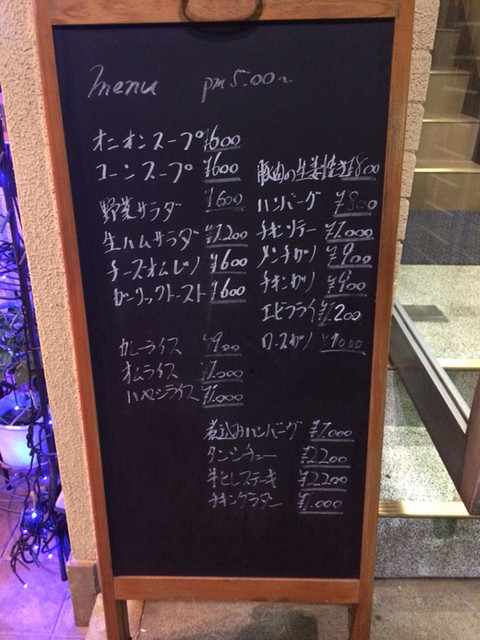 menu pm 5.00~
オニオンスープ ¥600
コーンスープ ¥600
野菜サラダ ¥600
生ハムサラダ ¥1.200
チーズオムレツ ¥600
ガーリックトースト ¥600
カレーライス ¥900
オムライス ¥1.000
ハヤシライス ¥1.000
豚肉の生姜焼き ¥800
ハンバーグ ¥800
チキンソテー ¥1.000
メンチカツ ¥900
チキンカツ ¥900
エビフライ ¥1200
ロースカツ ¥1000
煮込みハンバーグ ¥1.000
タンシチュー ¥2200
牛ヒレステーキ ¥2200
チキングラタン ¥1.000